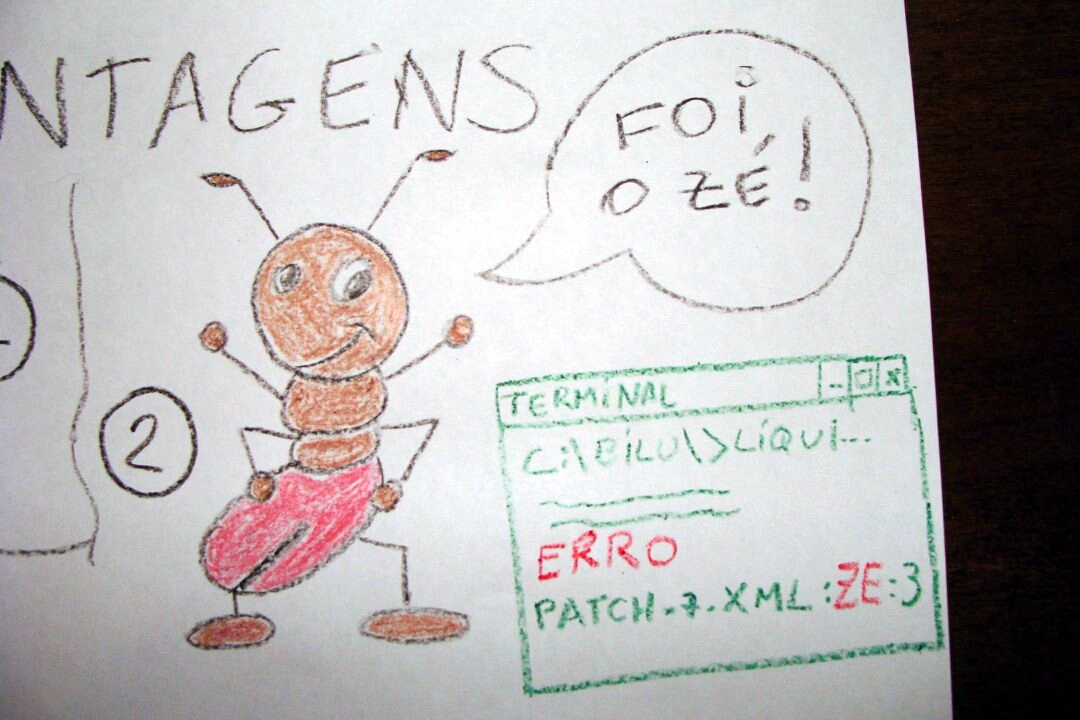 NTAGENS
FOi
O ZÉ!
2
TERMiNAL
C:\BiLU\>LiQUi...
ERRO
PATCH.7.XML:ZE:3